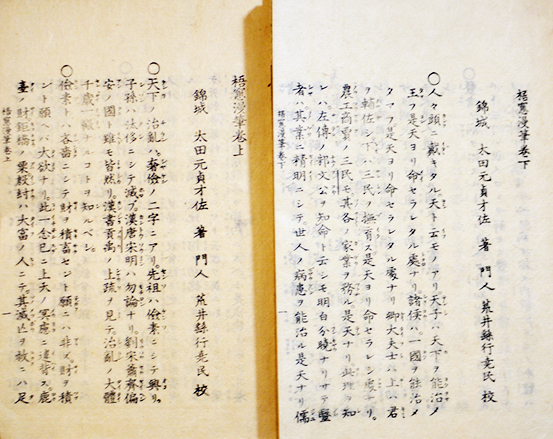 梧窓漫筆巻下
錦城 太田元貞才佐 著 門人 荒井繇行尭民 校
○人々頭ニ戴キタル天ト云モノアリ天子ハ天下ヲ能治ノ
王フ是天ヨリ命セラレタル處ナリ諸侯ハ一國ヲ能治メ
タマフ是天ヨリ命セラレタル處ナリ卿大夫士ハ上ハ君
ヲ輔佐シ下ハ三民ヲ撫育ス是天ヨリ命セラレシ處ナリ
農工商賈ノ三民モ其各ノ家業ヲ務ル是天ナリ此理ヲ知
シハ左傳ノ邾文公ヲ知命ト云シモ明白分曉ナリサテ醫
者ハ其業ニ精明ニシテ世人ノ病患ヲ能治ル是天ナリ儒
梧窓漫筆巻下
一
梧窓漫筆巻上
錦城 太田元貞才佐 著 門人 荒井繇行尭民 校
○天下ノ治亂ハ奢儉ノ二字ニアリ先祖ハ儉素ニシテ興リ
子孫ハ汰侈ニシテ滅ブ漢唐宋明ハ勿論ナリ劉宋蕭齊偏
安ノ國ト雖モ皆然リ漢書貢禹ノ上疏ヲ見テ治亂ノ大體
千歳一轍ナルコトヲ知ルベシ
○儉素ト云ハ吝嗇ニシテ財ヲ積畜セント願ニハ非ズ財ヲ積
ント願ヘハ大欲ナリ此一念已ニ上天ノ冥慮ニ違背ス鹿
臺ノ財鉅橋ノ粟殷紂ハ大富ノ人ニテ其滅亡ヲ救ニハ足
梧窓漫筆巻上
一